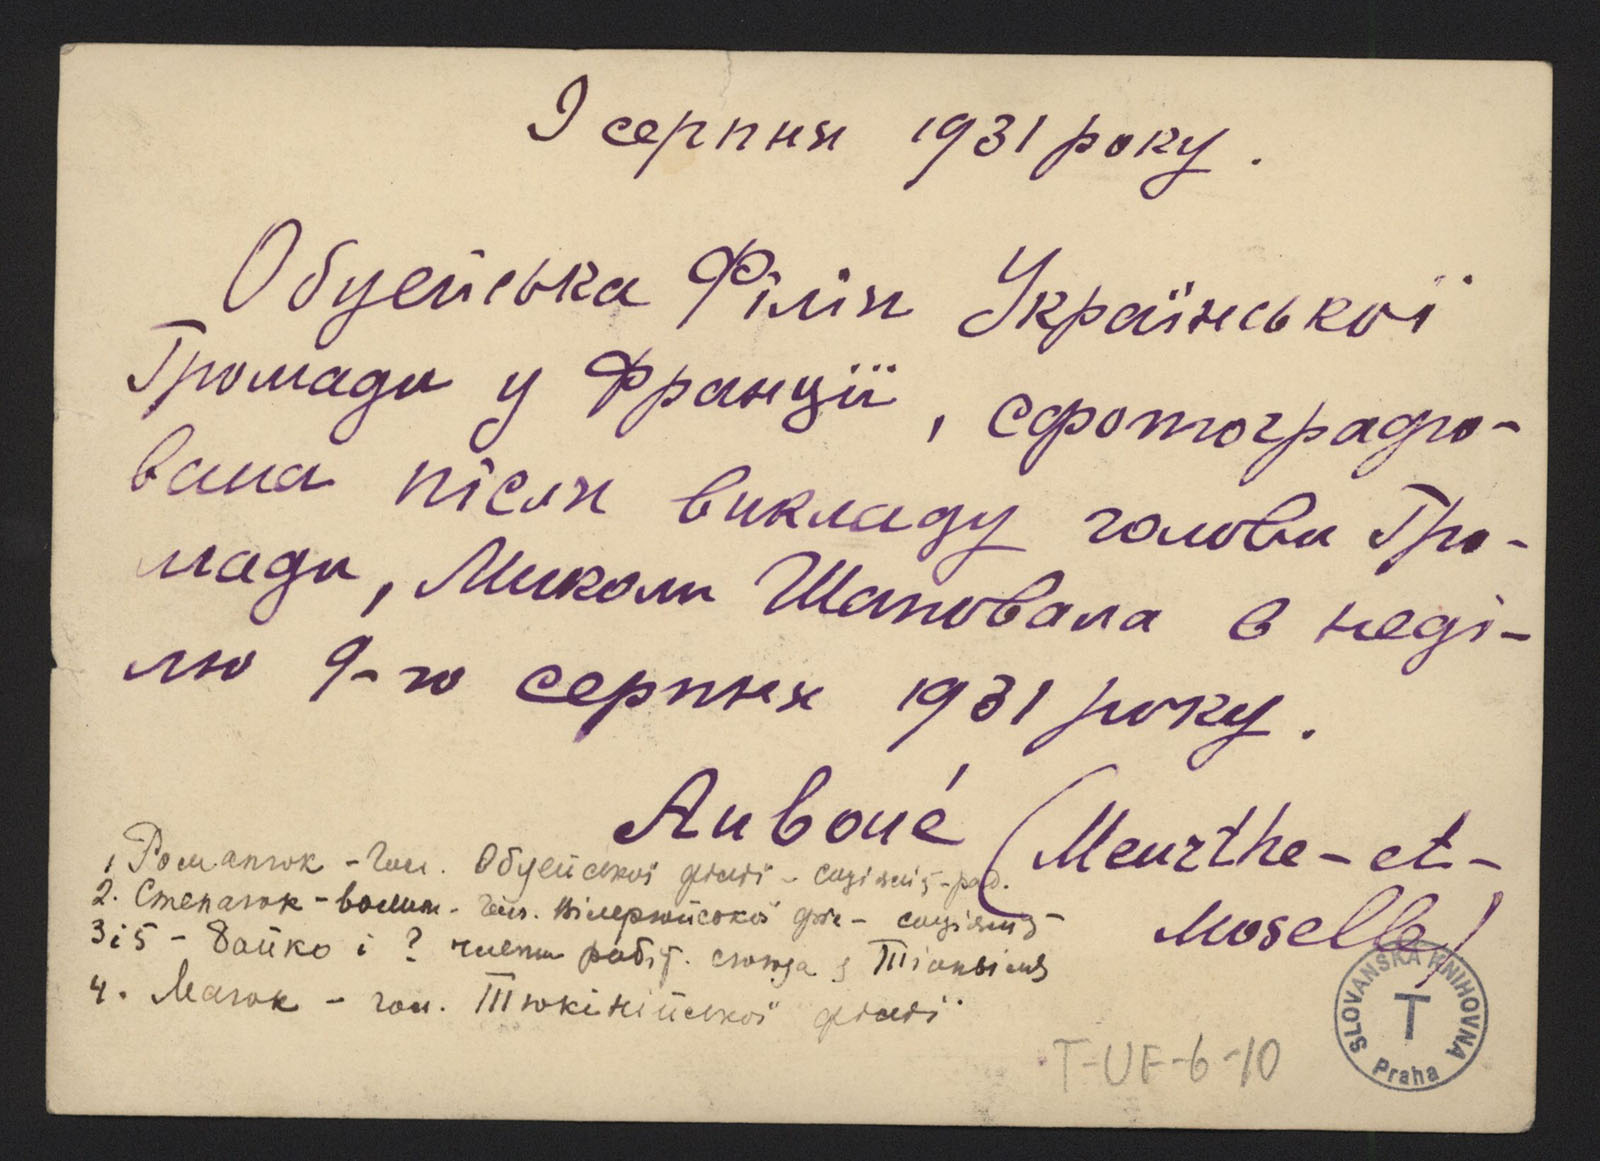 9 серпня 1931 року.
Обуейська Філія Української
Громади у Франції, сфотографо-
вана після викладу голови Гро-
мади, Миколи Шаповала в неді-
лю 9-го серпня 1931 року.
Auboué (Meurthe-et-
Moselle)
1 Романюк - гол. Обуейської філії - соціяліст-рад.
2. Степанюк - волин. - гол. Вілерюйської філ -
3 і 5 - Бойко і ? члени робіт. союза з
4. Мазюк - гол. Тюкінійської філії
T-UF-6-10
SLOVANSKÁ KNIHOVNA
T
Praha